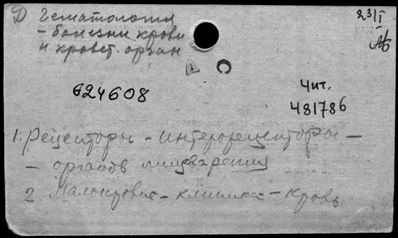 Д Гематология
- болезни крови
и кровет. орган
23/I
624608
Чит.
481786
1. Рецепторы - интерорецепторы -
- органов пищеварения
2 Малокровие - клиника - кровь